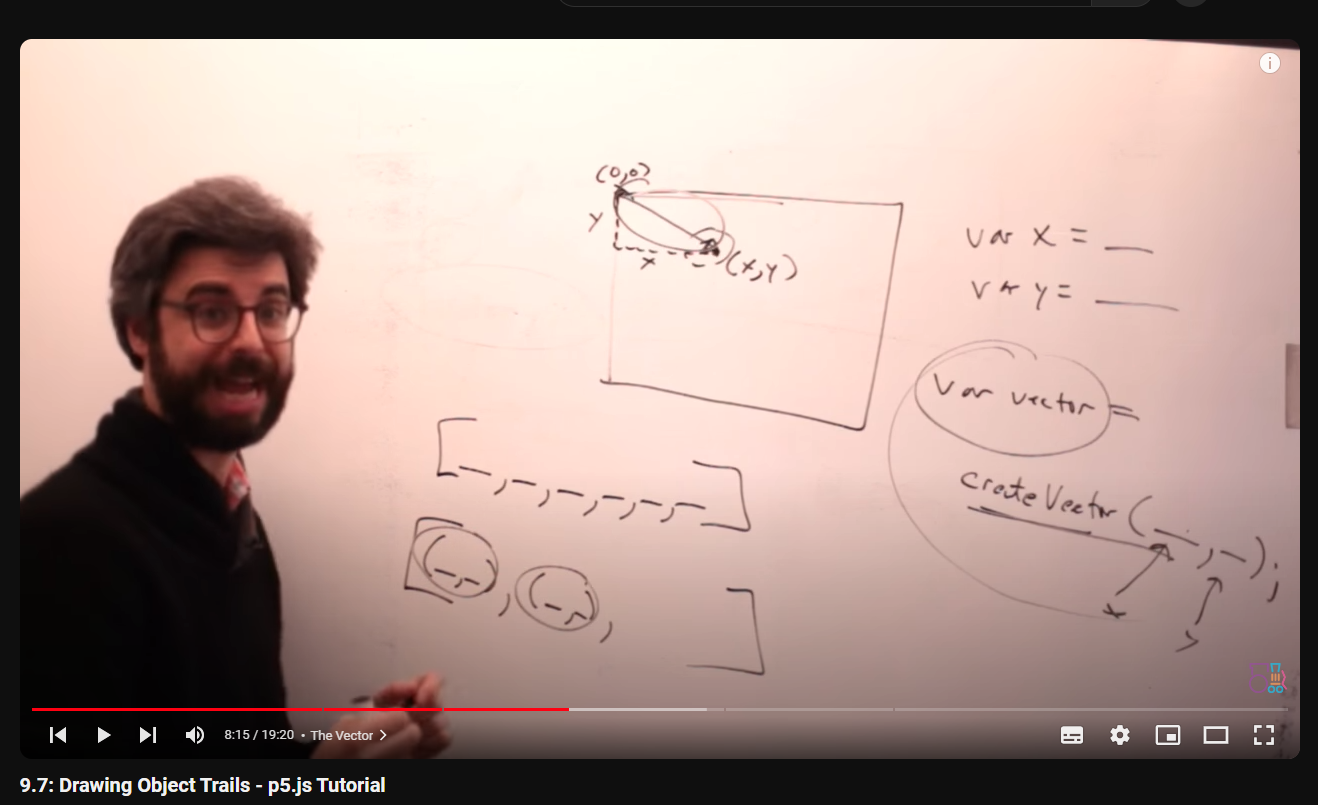 (0,0)
y
x
(x,y)
var x = __
var y = __
var vector =
createVector(_,_);
x
y
[_,_,_,_,_,_]
[(_,_),(_,_), ]
8:15 / 19:20 • The Vector >
9.7: Drawing Object Trails - p5.js Tutorial